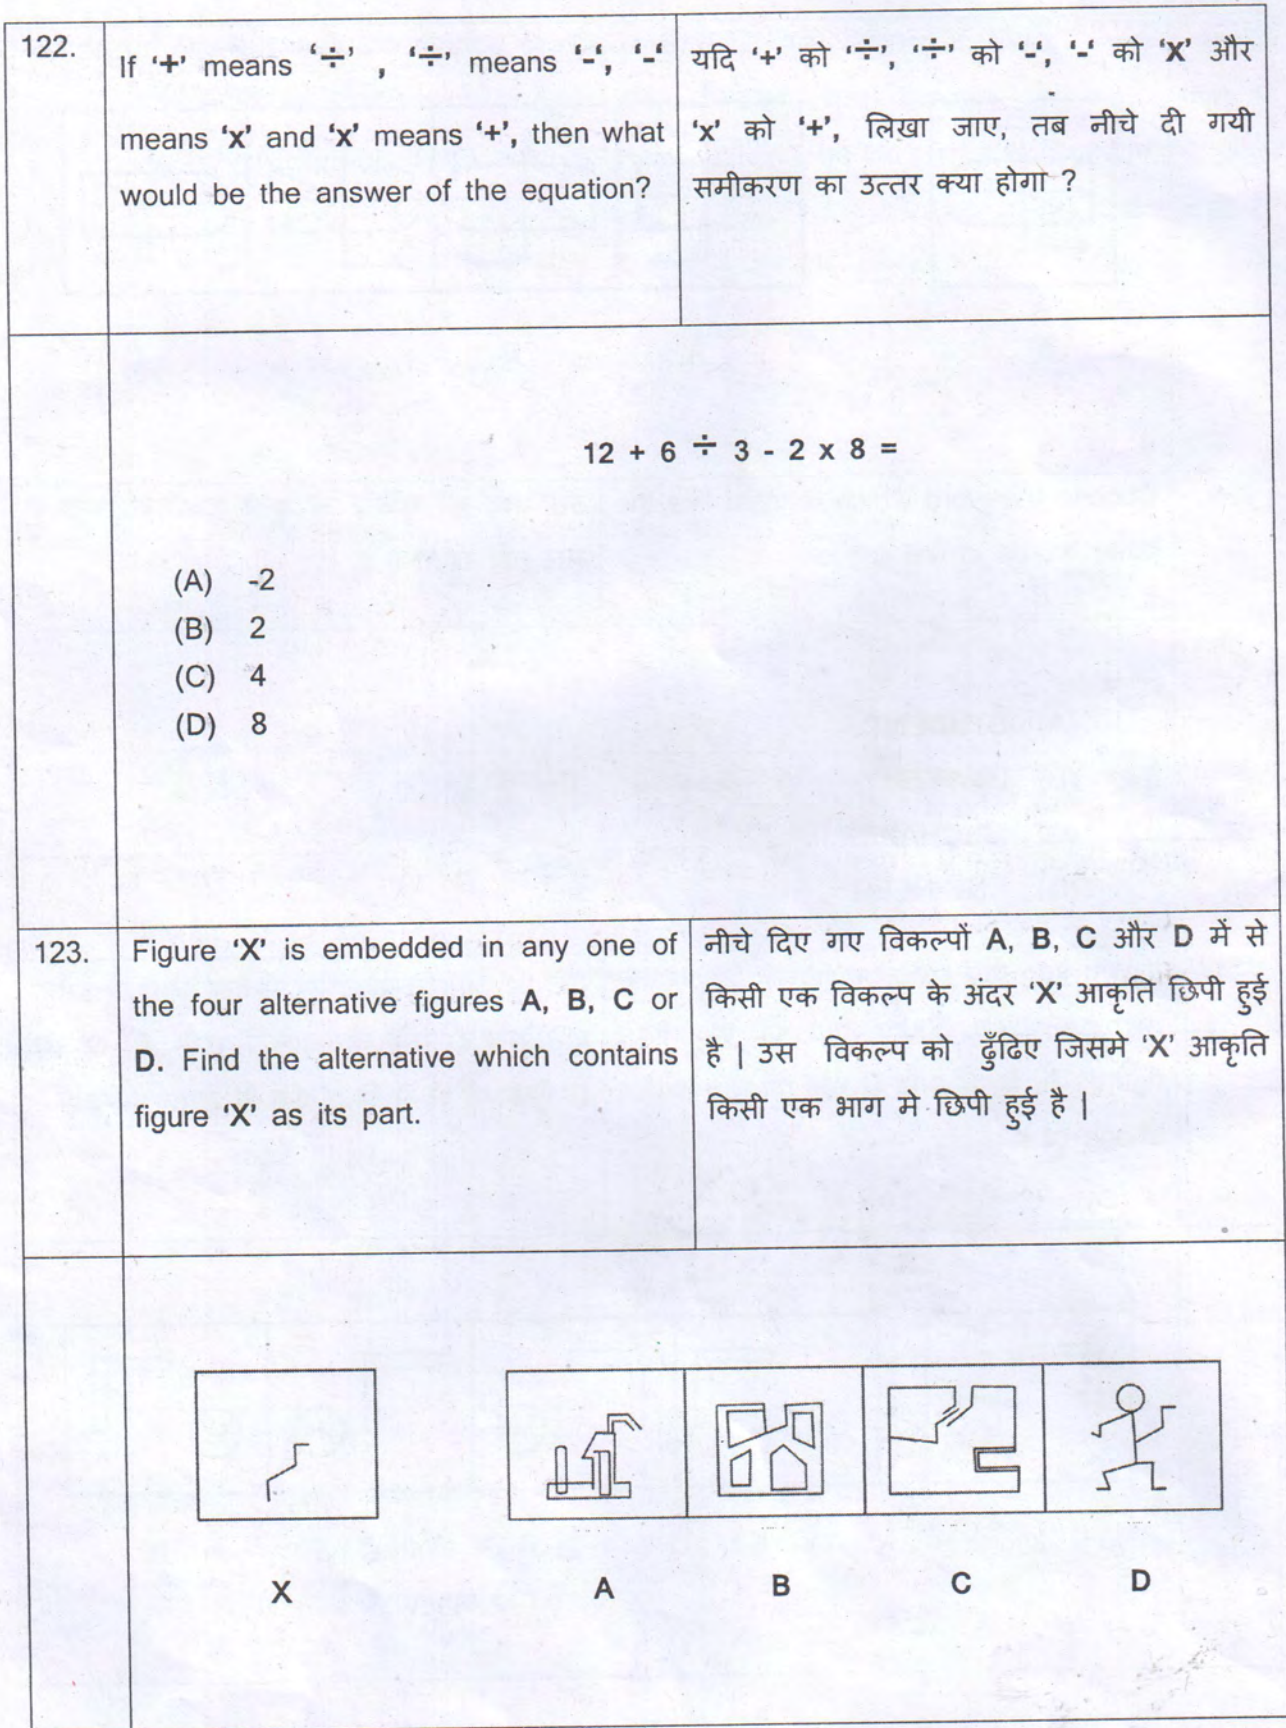 122.
If '+' means '÷' , '÷' means '-', '-'
means 'x' and 'x' means '+', then what
would be the answer of the equation?
यदि '+' को '÷', '÷' को '-', '-' को 'X' और
'x' को '+', लिखा जाए, तब नीचे दी गयी
समीकरण का उत्तर क्या होगा ?
12 + 6 ÷ 3 - 2 x 8 =
(A) -2
(B) 2
(C) 4
(D) 8
123.
Figure 'X' is embedded in any one of
the four alternative figures A, B, C or
D. Find the alternative which contains
figure 'X' as its part.
नीचे दिए गए विकल्पों A, B, C और D में से
किसी एक विकल्प के अंदर 'X' आकृति छिपी हुई
है | उस विकल्प को ढुँढिए जिसमे 'X' आकृति
किसी एक भाग मे छिपी हुई है |
X A B C D